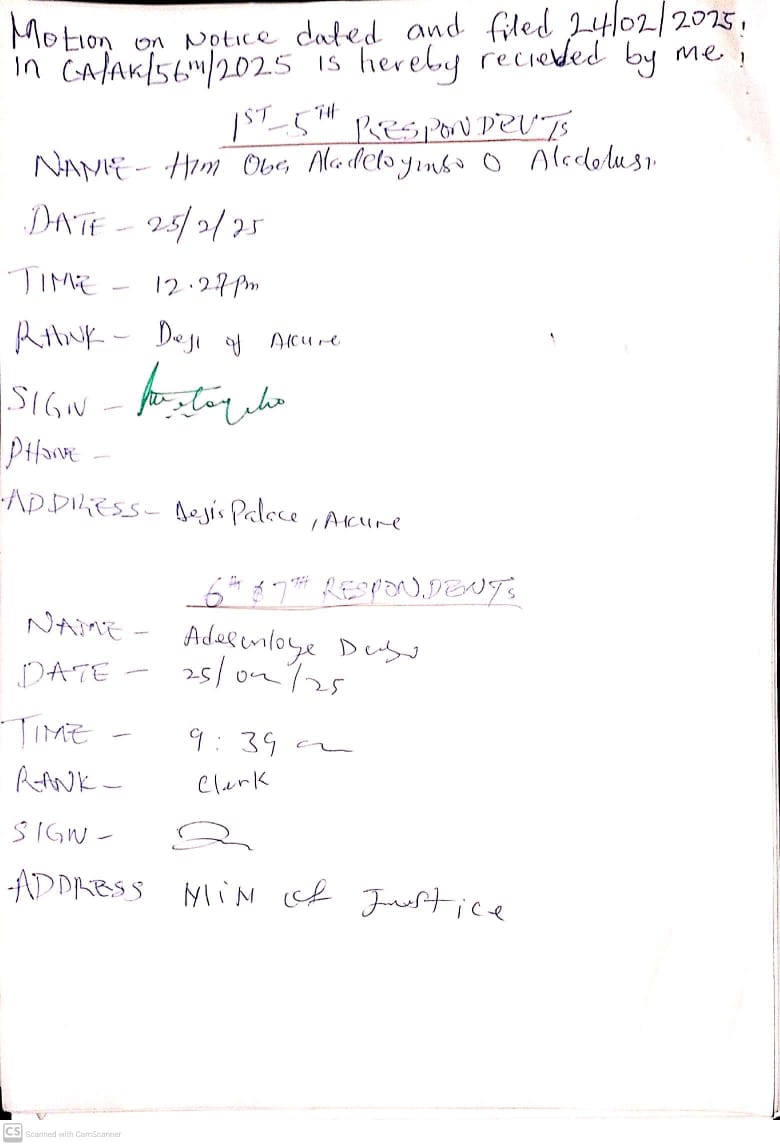 Motion on Notice dated and filed 24/02/2025.
In CA/AK/56M/2025 is hereby recieved by me;
1ST-5TH RESPONDENTS
NAME- Him Oba Aladeloyinbo O Aladelusi
DATE - 25/2/25
TIME - 12.27pm
RANK - Deji of Akure
SIGN -
PHONE -
ADDRESS- Dejis Palace, Akure
6TH & 7TH RESPONDENTS
NAME -
DATE - 25/02/25
TIME - 9:39 am
RANK - Clerk
SIGN -
ADDRESS MIN of Justice
CS Scanned with CamScanner